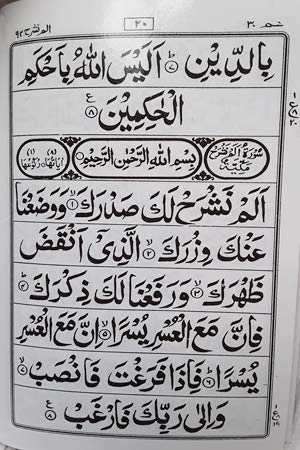 الم نشرح ٩٤ ٢٠ عم ٣٠
بِالدِّيْنِ ۟ؕ ۷ اَلَيْسَ اللّٰهُ بِاَحْكَمِ
الْحٰكِمِيْنَ ۸ ع
سُوْرَةُ اَلَمْ نَشْرَحْ مَكِّيَّةٌ بِسْمِ اللّٰهِ الرَّحْمٰنِ الرَّحِيْمِ اٰيَاتُهَا (۸) رُكُوْعُهَا (۱)
اَلَمْ نَشْرَحْ لَكَ صَدْرَكَ ۱ وَوَضَعْنَا
عَنْكَ وِزْرَكَ ۲ الَّذِيْۤ اَنْقَضَ
ظَهْرَكَ ۳ وَرَفَعْنَا لَكَ ذِكْرَكَ ۴
فَاِنَّ مَعَ الْعُسْرِ يُسْرًا ۵ اِنَّ مَعَ الْعُسْرِ
يُسْرًا ۶ فَاِذَا فَرَغْتَ فَانْصَبْ ۷
وَاِلٰى رَبِّكَ فَارْغَبْ ۸ ع